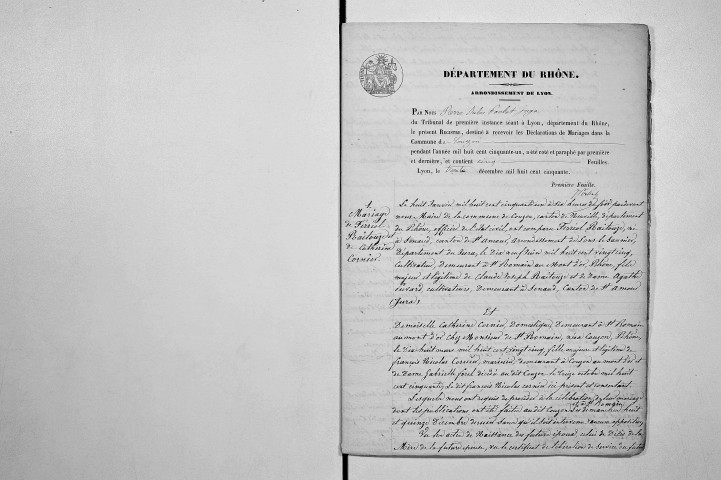 DÉPARTEMENT DU RHÔNE.
ARRONDISSEMENT DE LYON.
PAR NOUS Pierre Jules
du Tribunal de première instance séant à Lyon, département du Rhône,
le présent REGISTRE, destiné à recevoir les Déclarations de Mariages dans la
Commune de Couzon
pendant l'année mil huit cent cinquante-un, a été coté et paraphé par première
et dernière, et contient cinq Feuilles.
Lyon, le trente décembre mil huit cent cinquante.
Première Feuille.
1
Mariage
de Ferréol
Bailouze et
de Catherine
Cornier
Le huit Janvier mil huit cent cinquante un à dix heures du pardevant
nous Maire de la commune de Couzon, canton de Neuville, département
du Rhône, officier de l'état civil, ont comparu Ferréol Bailouze, né
à Senaud, canton de St Amour, arrondissement de Lons le Saunier,
Département du Jura, le dix neuf juin mil huit cent vingt cinq,
cultivateur, demeurant à St Romain au Mont d'or, Rhône, fils
majeur et légitime de Claude Joseph Bailouze et de dame Agathe
cultivateurs, Demeurant à Senaud, Canton de St Amour
(Jura).
Et
Demoiselle Catherine Cornier, Domestique, Demeurant à St Romain
au mont d'or chez Monsieur de St Romain, née à Couzon, Rhône,
le dix huit mars mil huit cent vingt cinq, fille majeure et légitime de
françois Nicolas Cornier, marinier, demeurant à Couzon au mont d'or et
de Dame Gabrielle décédée au dit Couzon le treize octobre mil huit
cent cinquante, Le dit françois Nicolas cornier ici présent et consentant.
Lesquels nous ont requis de procéder à la célébration de leur mariage
dont les publications ont été faites au dit Couzon et à St Romain les dimanches huit
et quinze Décembre dernier sans qu'il soit intervenu aucune opposition,
Vu les actes de Naissance des futurs époux, celui de Décès de la
Mère de la future épouse, vu le certificat de libération de Service du futur